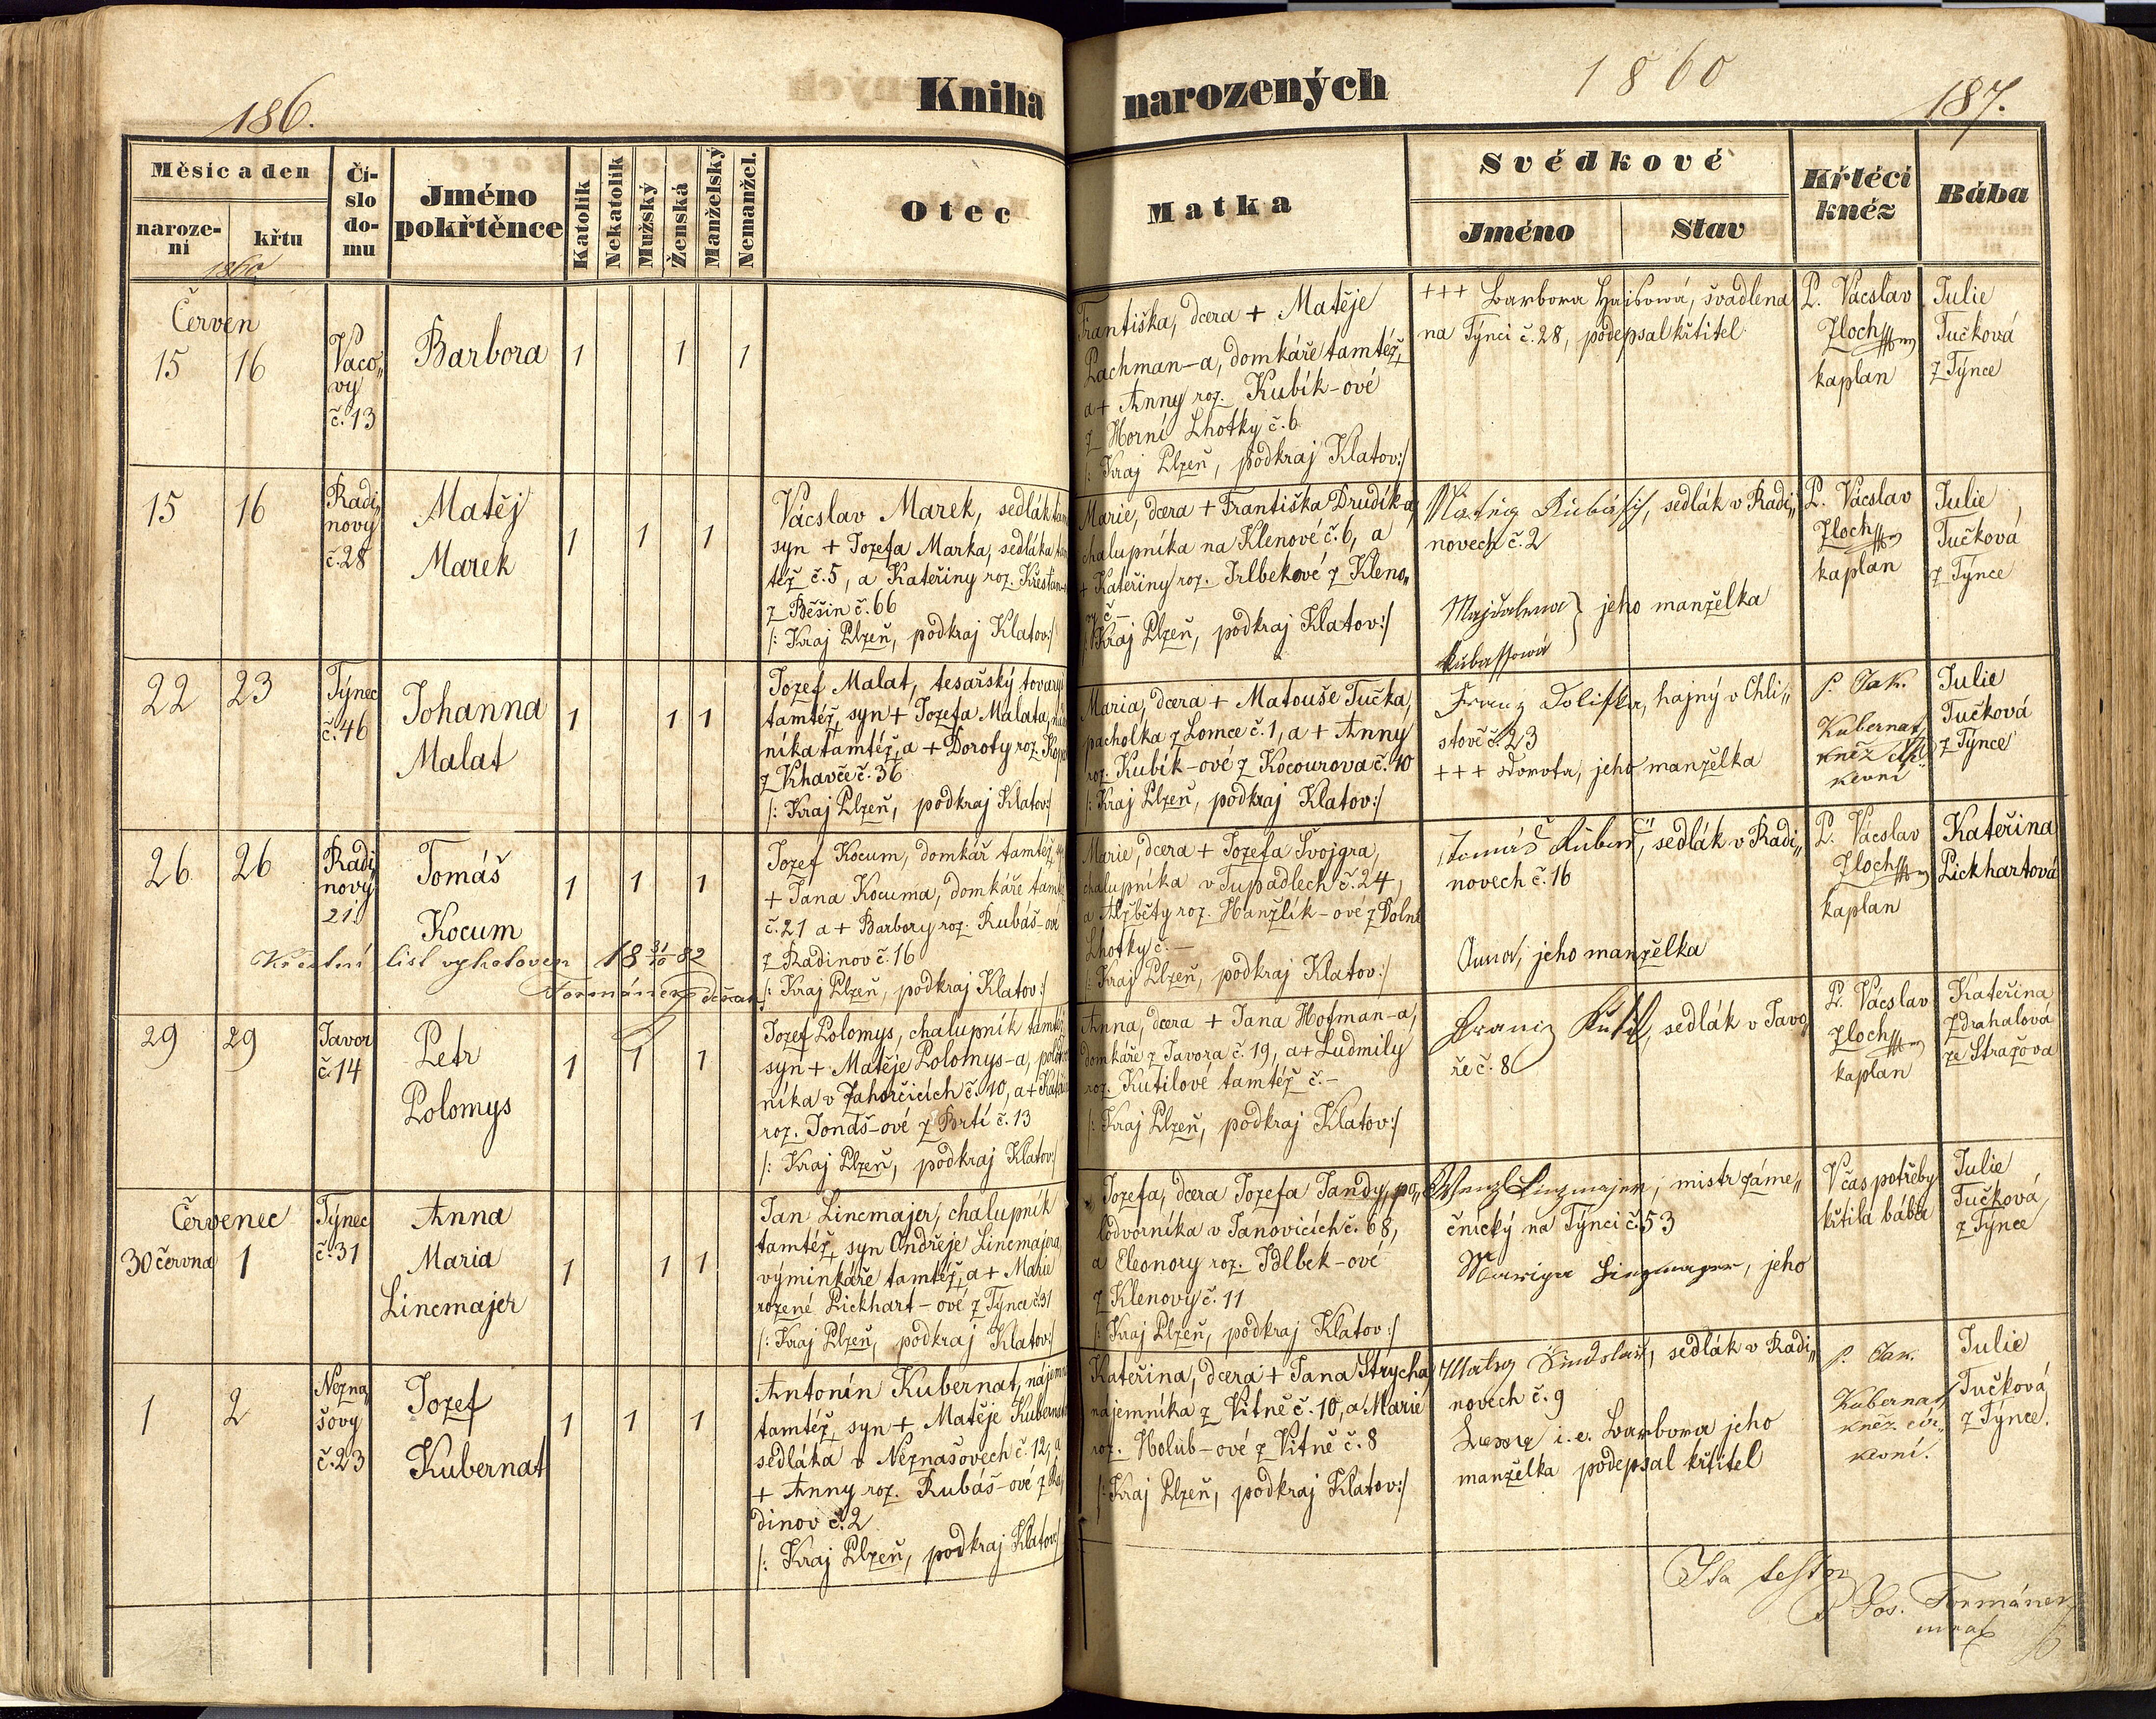 Kniha narozených
1860
186.
187.
Měsíc a den
naroze-
ní
křtu
1860
Čí-
slo
do-
mu
Jméno
pokřtěnce
Katolík
Nekatolík
Mužský
Ženská
Manželský
Nemanžel.
Otec
Matka
Svědkové
Jméno
Stav
Křtěcí
kněz
Bába
Červen
15 16
Vaco„
vy
č. 13
Barbora
1 1 1
Františka, dcera + Matěje
Pachman-a, domkáře tamtéž,
a + Anny roz. Kubík-ové
z Horní Lhotky č. 6
/: Kraj Plzeň, podkraj Klatov:/
+++ Barbora Hajsová, švadlena
na Týnci č. 28, podepsal křtitel
P. Vácslav
Zloch
kaplan
Julie
Tučková
z Týnce
15 16
Radi„
novy
č. 28
Matěj
Marek
1 1 1
Vácslav Marek, sedlák
syn + Jozefa Marka, sedláka
též č. 5, a Kateřiny roz.
z Běšin č. 66
/: Kraj Plzeň, podkraj Klatov:/
Marie, dcera + Františka Drudík-a,
chalupníka na Klenové č. 6, a
+ Kateřiny roz. Irlbekové z Kleno„
vy č –
/: Kraj Plzeň, podkraj Klatov:/
sedlák v Radi„
novech č. 2
Majdalena } jeho manželka
P. Vácslav
Zloch
kaplan
Julie
Tučková
z Týnce
22 23
Týnec
č. 46
Johanna
Malat
1 1 1
Jozef Malat, tesařský tovary
tamtéž, syn + Jozefa Malata,
níka tamtéž, a + Doroty roz.
z Khavče č. 36
/: Kraj Plzeň, podkraj Klatov:/
Maria, dcera + Matouše Tučka,
pacholka z Lomce č. 1, a + Anny
roz. Kubík-ové z Kocourova č. 10
/: Kraj Plzeň, podkraj Klatov:/
Franz hajný v Chli„
stově č. 23
+++ Dorota, jeho manželka
P. Jak.
Kubernat,
kněz
kevní
Julie
Tučková
z Týnce
26 26
Radi„
novy
21.
Tomáš
Kocum
1 1 1
Jozef Kocum, domkář tamtéž,
+ Jana Kocuma, domkáře
č. 21 a + Barbory roz. Rubáš-ové
z Radinov č. 16
/: Kraj Plzeň, podkraj Klatov:/
Křestní list vyhotoven 18 31/10 82
Formánek, děkan
Marie, dcera + Jozefa Švojgra,
chalupníka v Tupadlech č. 24,
a Alžběty roz. Hanžlík-ové z Dolní
Lhotky č. –
/: Kraj Plzeň, podkraj Klatov:/
Tomáš sedlák v Radi„
novech č. 16
Anna, jeho manželka
P. Vácslav
Zloch
kaplan
Kateřina
Lickhartová
29 29
Javor
č. 14
Petr
Polomys
1 1 1
Jozef Polomys, chalupník tamtéž,
syn + Matěje Polomys-a,
níka v Zahorčicích č. 10, a +
roz. Jondš-ové z Brtí č. 13
/: Kraj Plzeň, podkraj Klatov:/
Anna, dcera + Jana Hofman-a,
domkáře z Javora č. 19, a + Ludmily
roz. Kutilové tamtéž č. –
/: Kraj Plzeň, podkraj Klatov:/
sedlák v Javo„
ře č. 8
P. Vácslav
Zloch
kaplan
Kateřina
Zdrahalová
ze Stražova
Červenec
30 června 1
Týnec
č. 31
Anna
Maria
Lincmajer
1 1 1
Jan Lincmajer, chalupník
tamtéž, syn Ondřeje Lincmajera,
výminkáře tamtéž, a + Marie
rozené Lickhart-ové z Týnce č. 31
/: Kraj Plzeň, podkraj Klatov:/
Jozefa, dcera Jozefa Jandy, po„
lodvorníka v Janovicích č. 68,
a Eleonory roz. Idlbek-ové
z Klenovy č. 11
/: Kraj Plzeň, podkraj Klatov:/
Wenzl Linzmajer, mistr záme„
čnický na Týnci č. 53
Mariya jeho
V čas potřeby
křtila bába
Julie
Tučková,
z Týnce
1 2
Nezna„
šovy
č. 23
Jozef
Kubernat
1 1 1
Antonín Kubernat,
tamtéž, syn + Matěje Kubernat
sedláka v Neznašovech č. 12, a
+ Anny roz. Rubáš-ové z Ra„
dinov č. 2
/: Kraj Plzeň, podkraj Klatov:/
Kateřina, dcera + Jana Strycha,
nájemníka z Vitně č. 10, a Marie
roz. Holub-ové z Vitně č. 8
/: Kraj Plzeň, podkraj Klatov:/
sedlák v Radi„
novech č. 9
i. e. Barbora jeho
manželka podepsal křtitel
P. Jak.
Kubernat,
kněz cír„
kevní.
Julie
Tučková
z Týnce.
Ita testor
P. Jos. Formánek